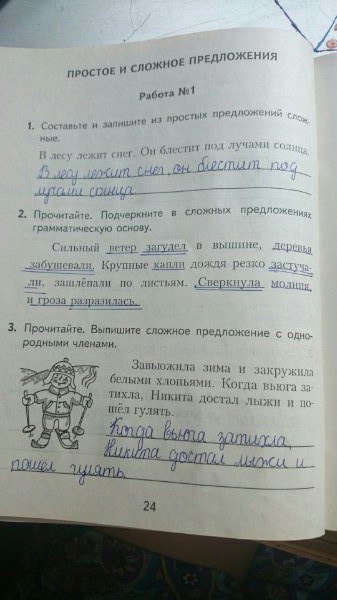 ПРОСТОЕ И СЛОЖНОЕ ПРЕДЛОЖЕНИЯ
Работа №1
1. Составьте и запишите из простых предложений слож-
ные.
В лесу лежит снег. Он блестит под лучами солнца.
В лесу лежит снег, он блестит под
лучами солнца
2. Прочитайте. Подчеркните в сложных предложениях
грамматическую основу.
Сильный ветер загудел в вышине, деревья
забушевали. Крупные капли дождя резко застуча-
ли, зашлёпали по листьям. Сверкнула молния,
и гроза разразилась.
3. Прочитайте. Выпишите сложное предложение с одно-
родными членами.
Завьюжила зима и закружила
белыми хлопьями. Когда вьюга за-
тихла, Никита достал лыжи и по-
шёл гулять.
Когда вьюга затихла,
Никита достал лыжи и
пошел гулять.
24